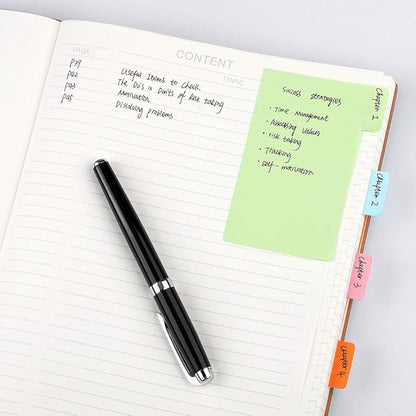 CONTENT
PAGE
TOPIC
P19 Useful Items to Check
P22 The Do's & Don'ts of Risk taking
P23 Motivation
P25 Dissolving problems
Success strategies
• Time Management
• Assessing Values
• risk taking
• Tracking
• self-motivation
Chapter 1
Chapter 2
Chapter 3
Chapter 4